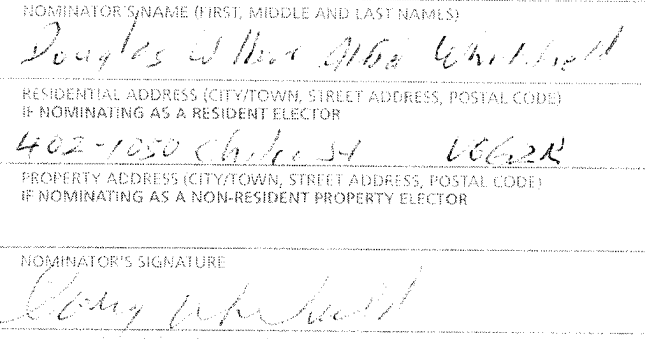 NOMINATOR'S NAME (FIRST, MIDDLE AND LAST NAMES)
Douglas
RESIDENTIAL ADDRESS (CITY/TOWN, STREET ADDRESS, POSTAL CODE)
IF NOMINATING AS A RESIDENT ELECTOR
402-1050 St
PROPERTY ADDRESS (CITY/TOWN, STREET ADDRESS, POSTAL CODE)
IF NOMINATING AS A NON-RESIDENT PROPERTY ELECTOR
NOMINATOR'S SIGNATURE
Doug